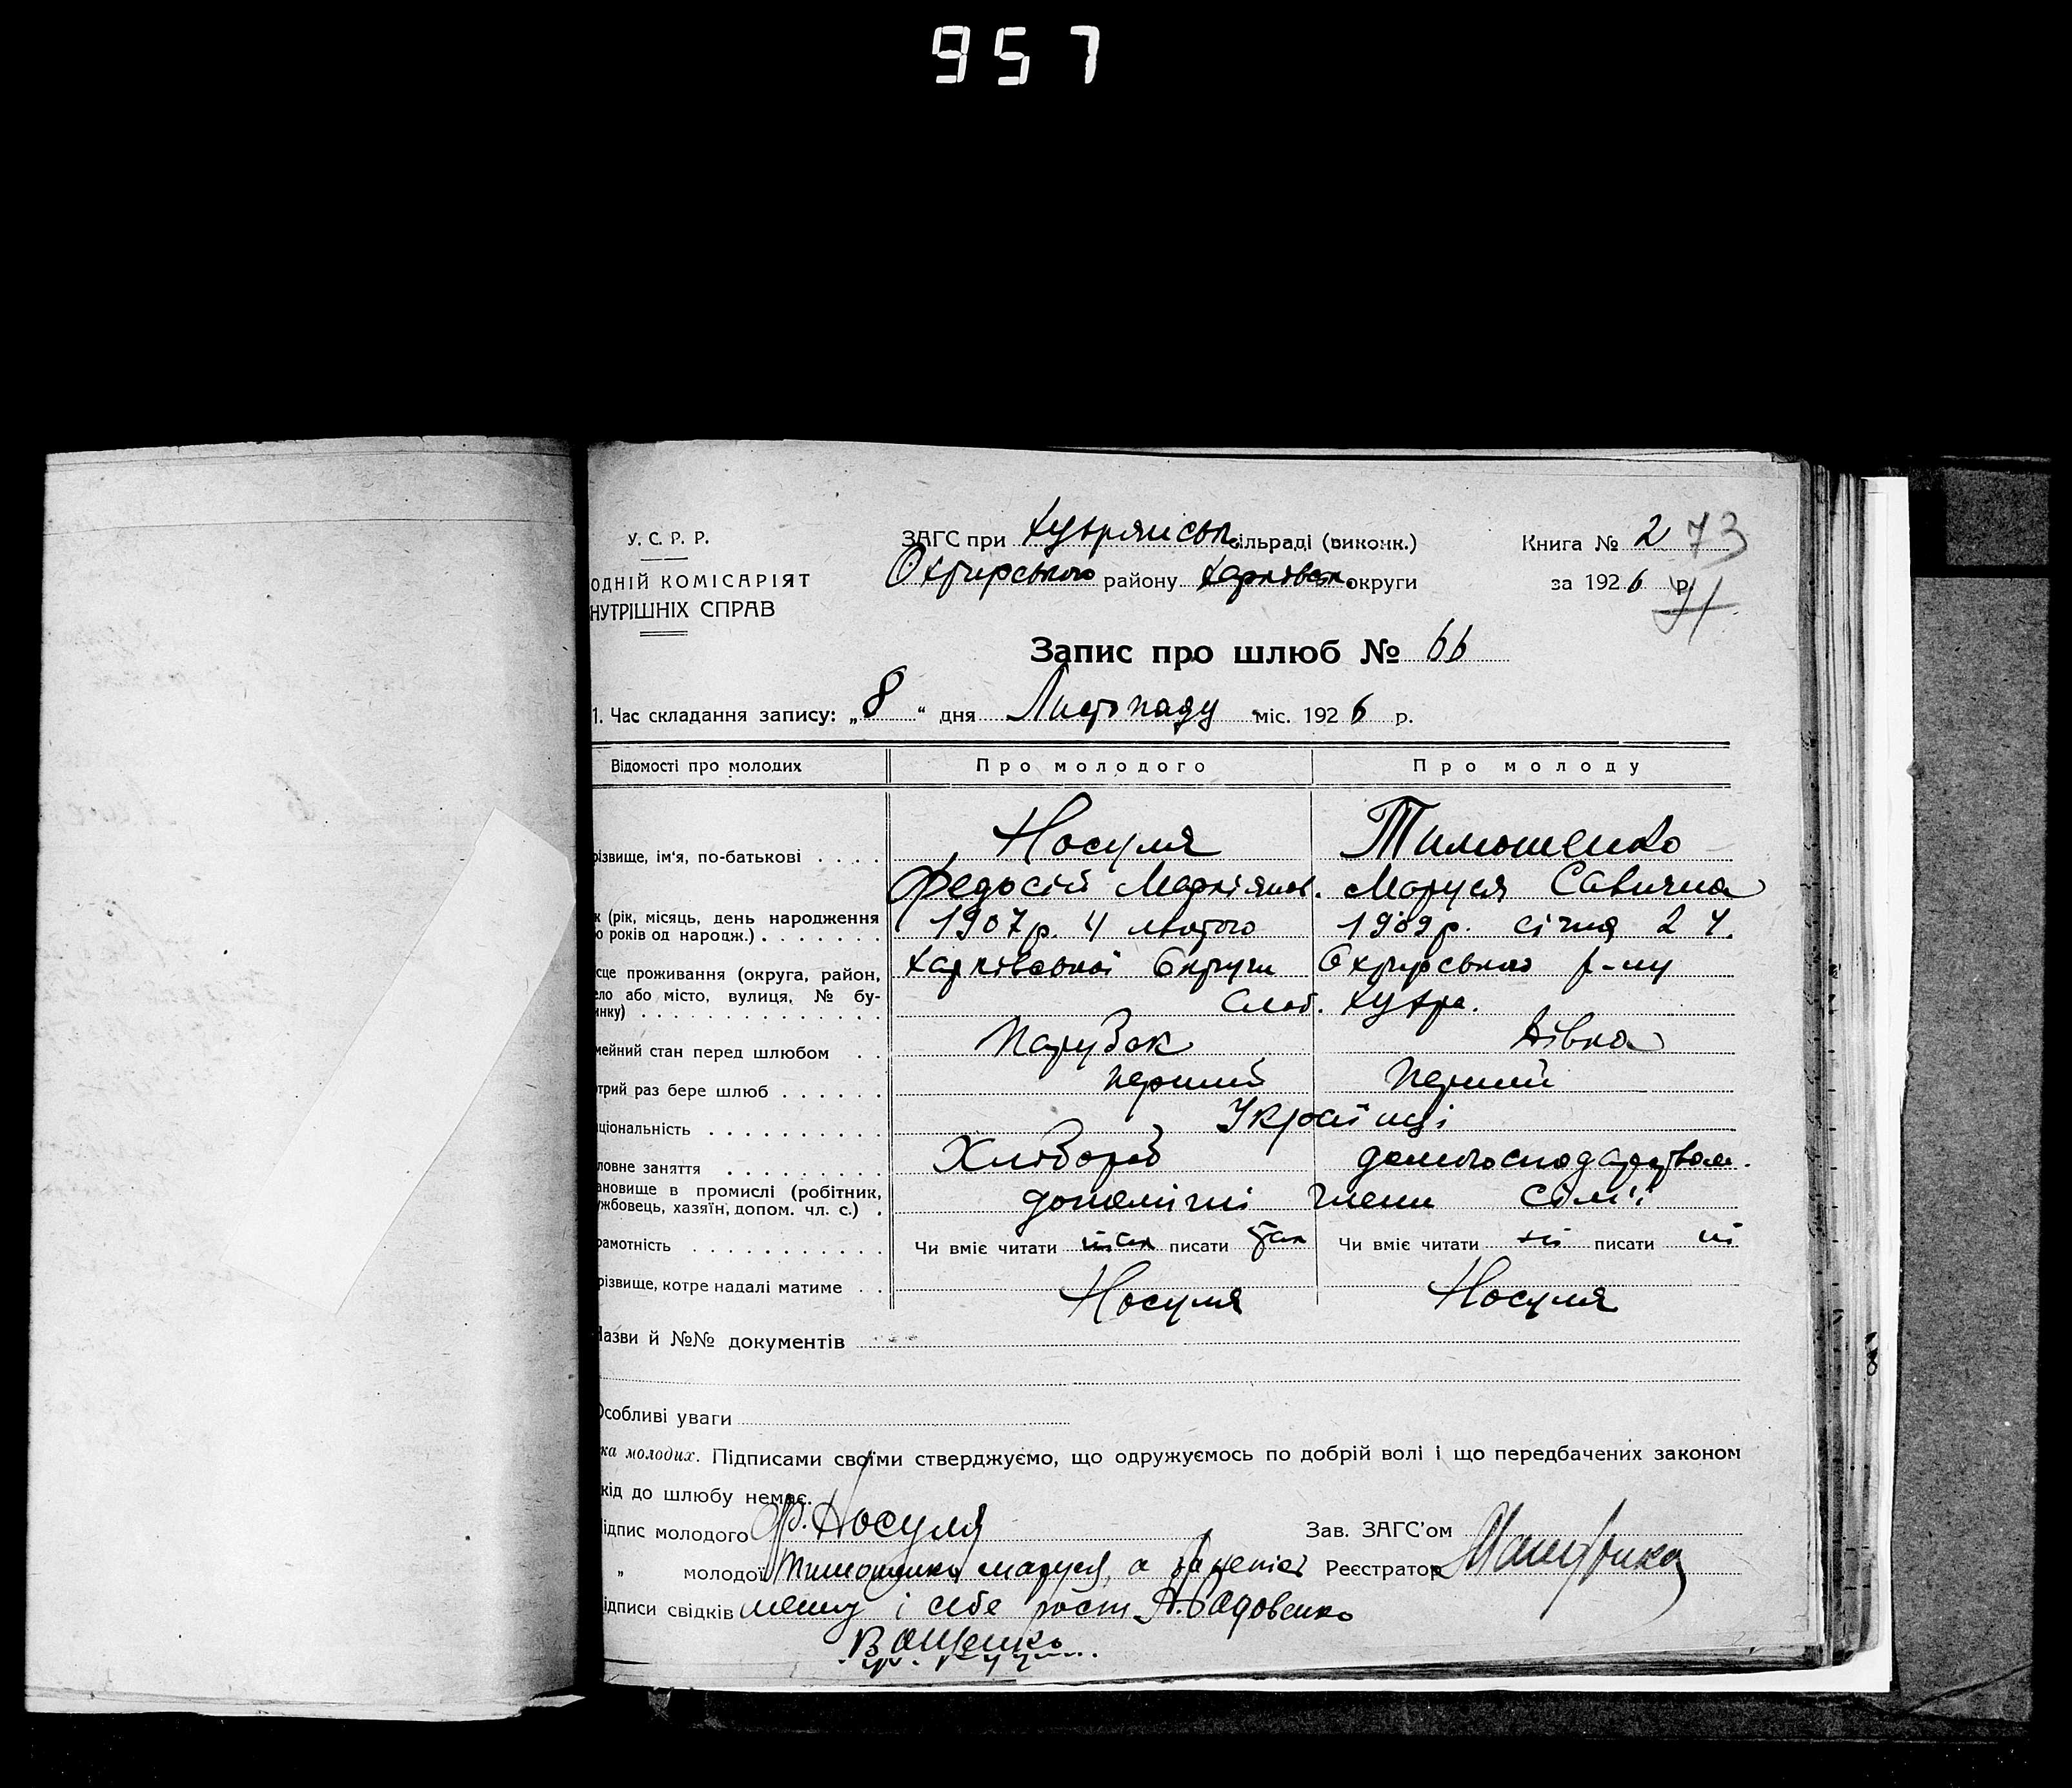 957
У. С. Р. Р.
ОДНІЙ КОМІСАРІЯТ
НУТРІШНІХ СПРАВ
ЗАГС при Хухрянськ. сільраді (виконк.)
Охтирського району Харківськ. округи
Книга № 2 73
за 1926 р.
71
Запис про шлюб № 66
1. Час складання запису: „8" дня Листопаду міс. 1926 р.
Відомості про молодих Про молодого Про молоду
різвище, ім'я, по-батькові . . . . Носуля Тимошенко
Федосій Маркіянов. Маруся Савична
к (рік, місяць, день народження
о років од народж.) . . . . . . . 1907 р. 4 лютого 1909 р. січня 24.
сце проживання (округа, район, Харківської Округи Охтирського р-ну
ело або місто, вулиця, № бу-
инку) . . . . . . . . . . . . . . Слоб. Хухра.
мейний стан перед шлюбом . . Парубок Дівка
отрий раз бере шлюб . . . . . . перший перший
ціональність . . . . . . . . . . Українці
ловне заняття . . . . . . . . . Хлібороб домогосподарством.
ановище в промислі (робітник,
ужбовець, хазяїн, допом. чл. с.) . допомічні члени сім'ї
рамотність . . . . . . . . . . . Чи вміє читати так писати так Чи вміє читати ні писати ні
різвище, котре надалі матиме . . Носуля Носуля
Назви й №№ документів
Особливі уваги
ка молодих. Підписами своїми стверджуємо, що одружуємось по добрій волі і що передбачених законом
кід до шлюбу немає.
ідпис молодого Ф. Носуля Зав. ЗАГС'ом
„ молодої Тимошенко Маруся, а Реєстратор
ідписи свідків і себе А. Садовенко
Ващенко